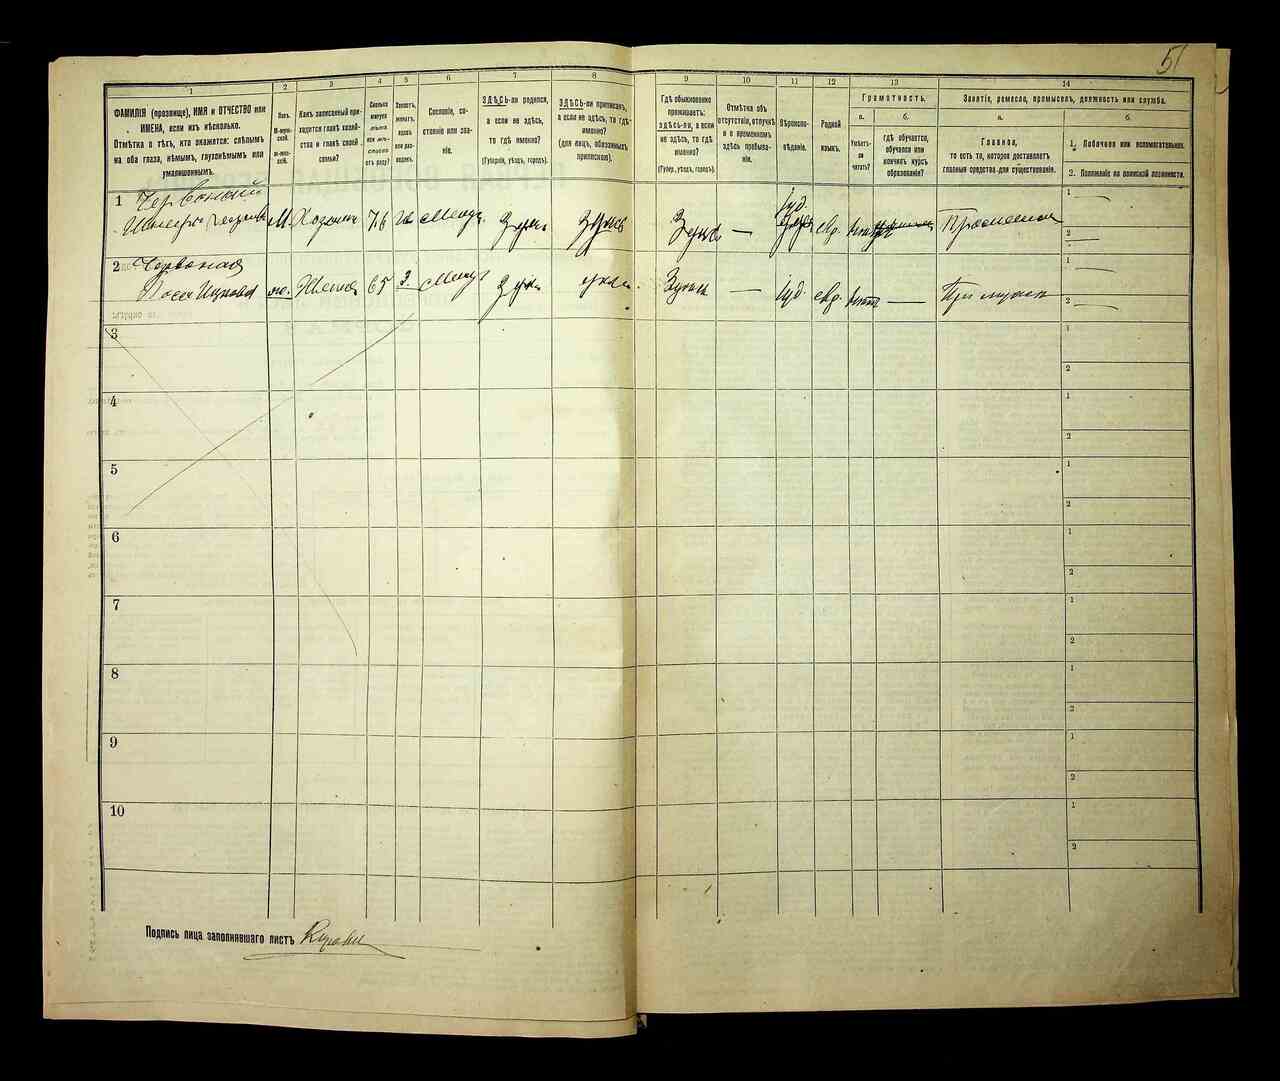 51
1
2
3
4
5
6
7
8
9
10
11
12
13
14
ФАМИЛІЯ (прозвище), ИМЯ и ОТЧЕСТВО или
ИМЕНА, если ихъ нѣсколько.
Отмѣтка о тѣхъ, кто окажется: слѣпымъ
на оба глаза, нѣмымъ, глухонѣмымъ или
умалишоннымъ.
Полъ.
М-муж-
ской.
Ж-жен-
скій.
Какъ записанный при-
ходится главѣ хозяй-
ства и главѣ своей
семьи?
Сколько
минуло
лѣтъ
или мѣ-
сяцевъ
отъ роду?
Холостъ,
женатъ,
вдовъ
или раз-
веденъ.
Сословіе, со-
стояніе или зва-
ніе.
ЗДѢСЬ-ли родился,
а если не здѣсь,
то гдѣ именно?
(Губернія, уѣздъ, городъ).
ЗДѢСЬ-ли приписанъ,
а если не здѣсь, то гдѣ
именно?
(для лицъ, обязанныхъ
припискою).
Гдѣ обыкновенно
проживаетъ:
здѣсь-ли, а если
не здѣсь, то гдѣ
именно?
(Губер., уѣздъ, городъ).
Отмѣтка объ
отсутствіи, отлучкѣ
и о временномъ
здѣсь пребыва-
ніи.
Вѣроиспо-
вѣданіе.
Родной
языкъ.
Грамотность.
а.
Умѣетъ-
ли
читать?
б.
гдѣ обучается,
обучался или
кончилъ курсъ
образованія?
Занятіе, ремесло, промыселъ, должность или служба.
а.
Главное,
то есть то, которое доставляетъ
главныя средства для существованія.
б.
1. Побочное или вспомогательное.
2. Положеніе по воинской повинности.
1 Червоный
М. Хозяинъ 76
Здѣсь Здѣсь Здѣсь — Іуд. евр.
1
2
2 Червоная
Жена 65 З.
Здѣсь — Іуд. евр. — При мужѣ
1
2
3
1
2
4
1
2
5
1
2
6
1
2
7
1
2
8
1
2
9
1
2
10
1
2
Подпись лица заполнявшаго листъ